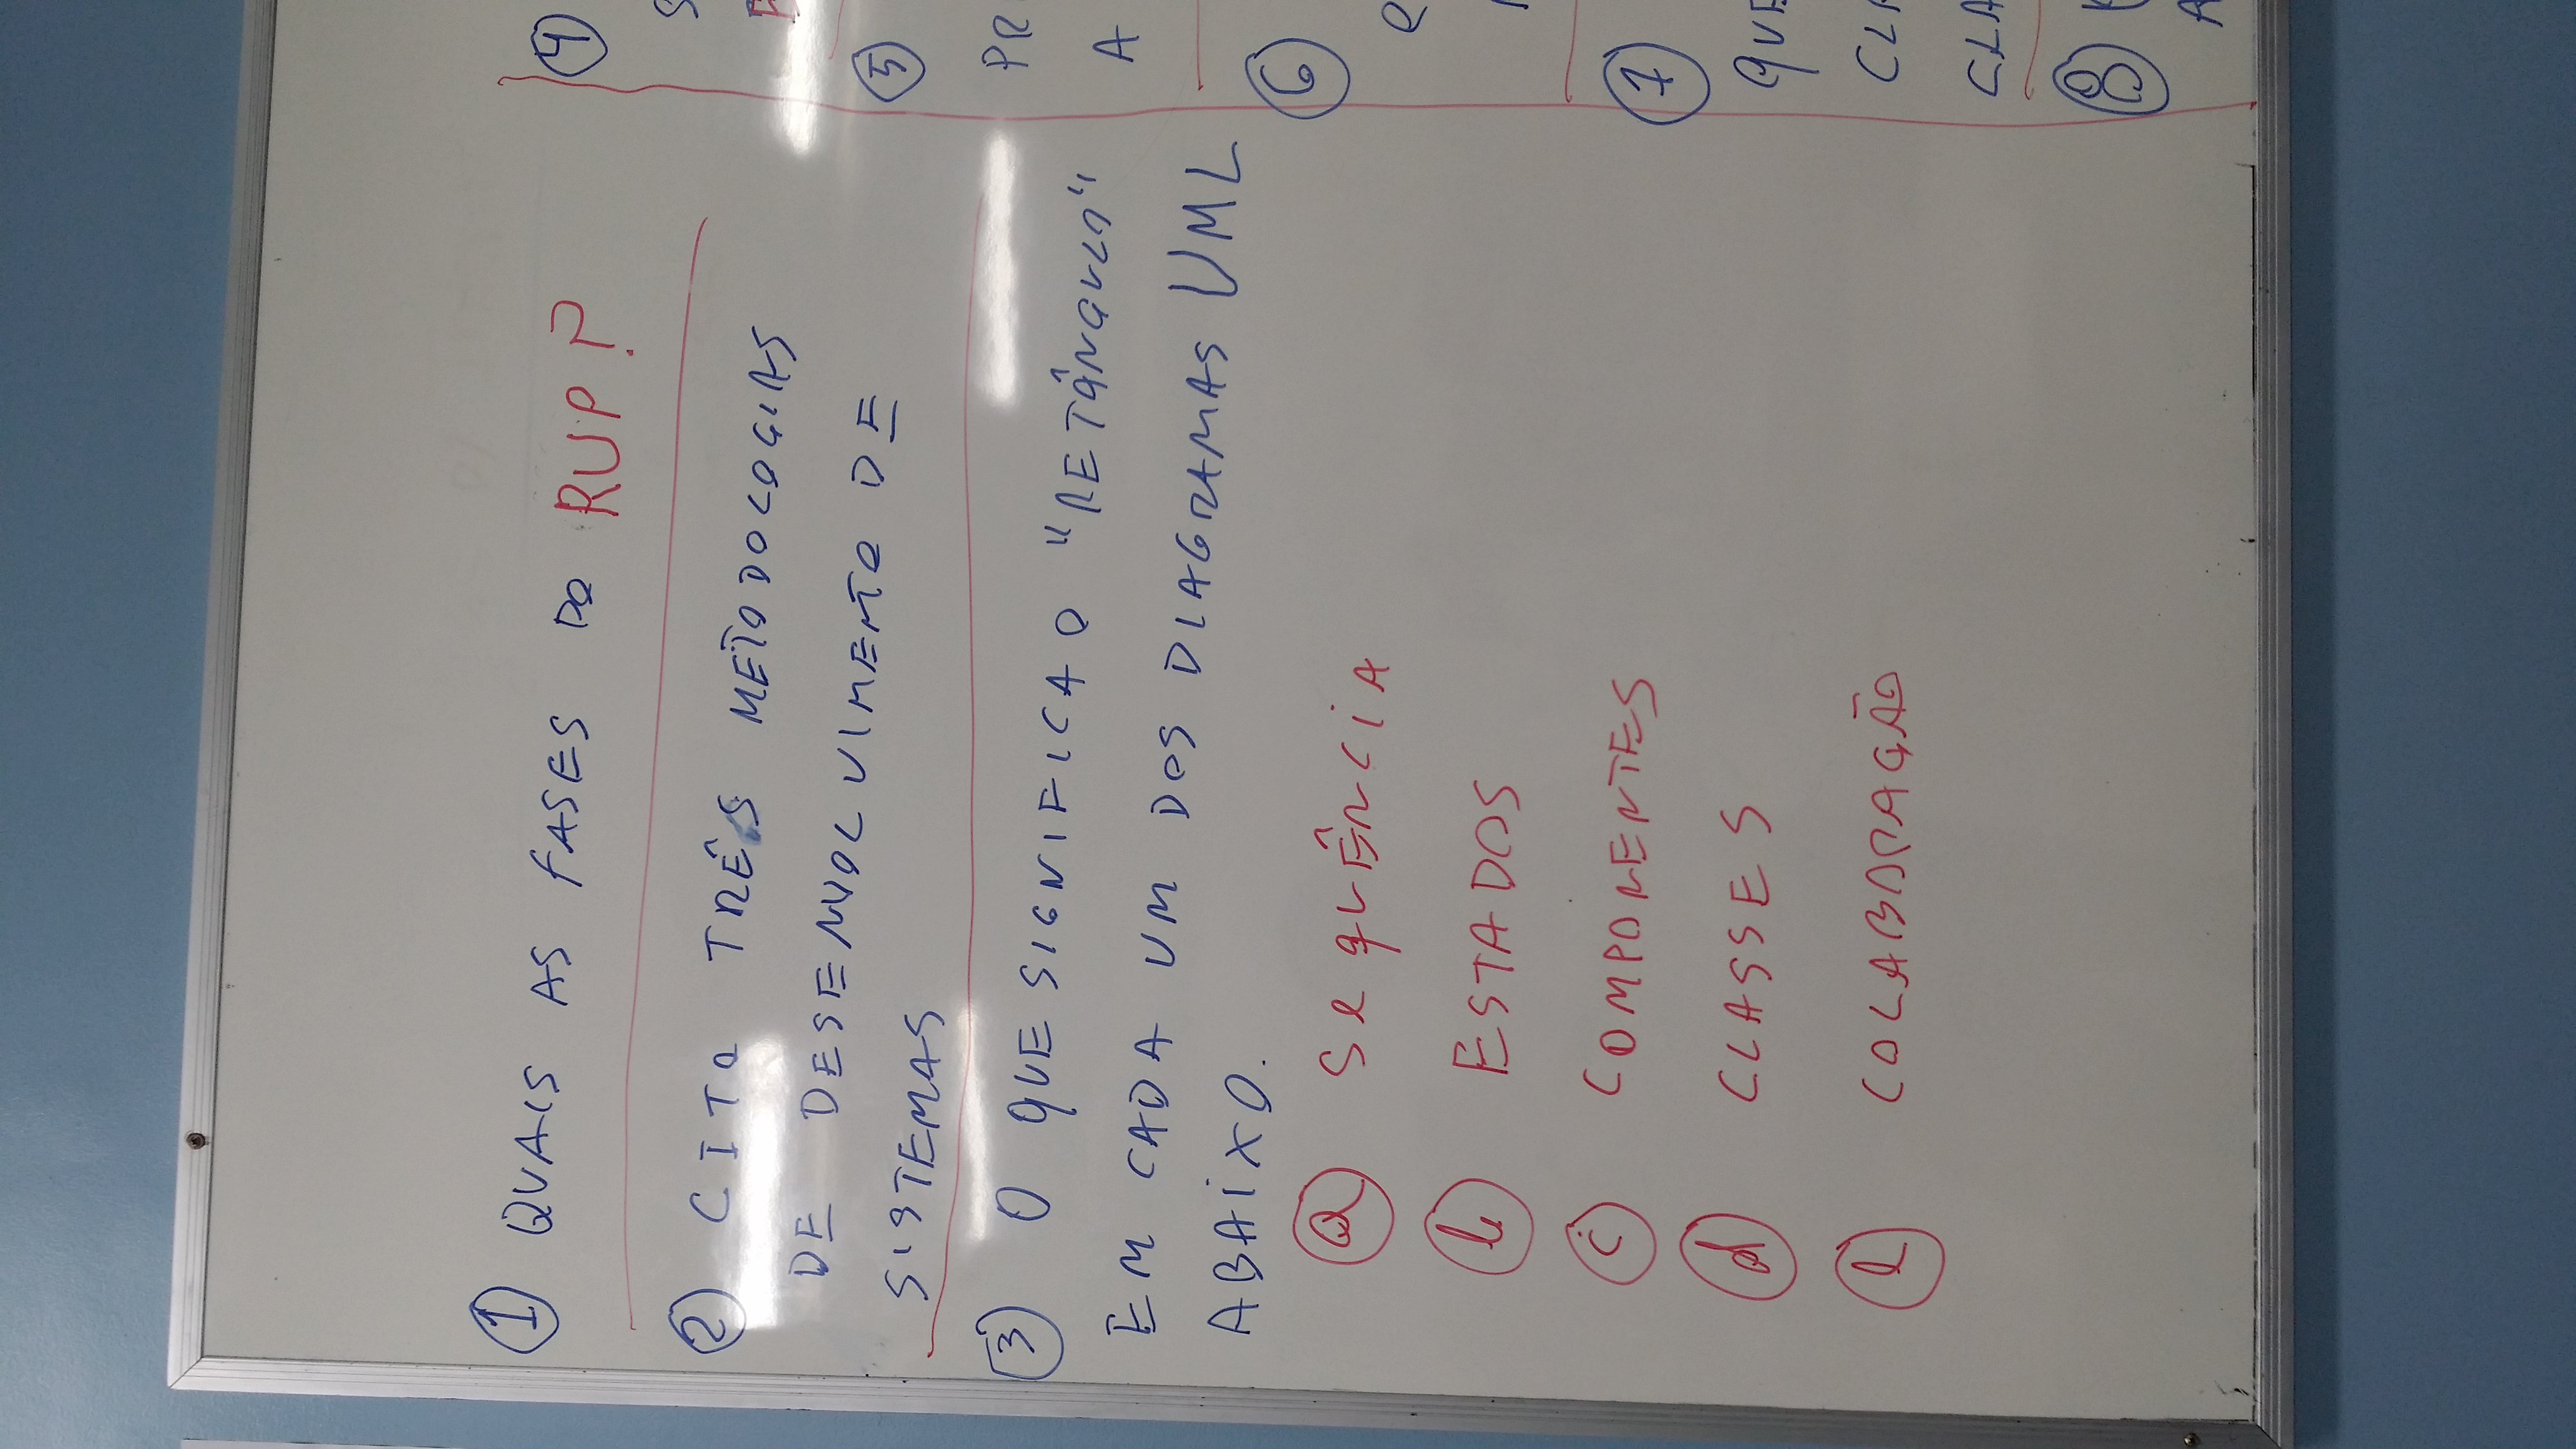 1 QUAIS AS FASES DO RUP?
2 CITO TRÊS METODOLOGIAS
DE DESENVOLVIMENTO DE
SISTEMAS
3 O QUE SIGNIFICA O "RETÂNGULO"
EM CADA UM DOS DIAGRAMAS UML
ABAIXO.
a SEQUÊNCIA
b ESTADOS
c COMPONENTES
d CLASSES
e COLABORAÇÃO
4
S
5
PR
A
6
e
7
QUE
CLA
CLA
8
A